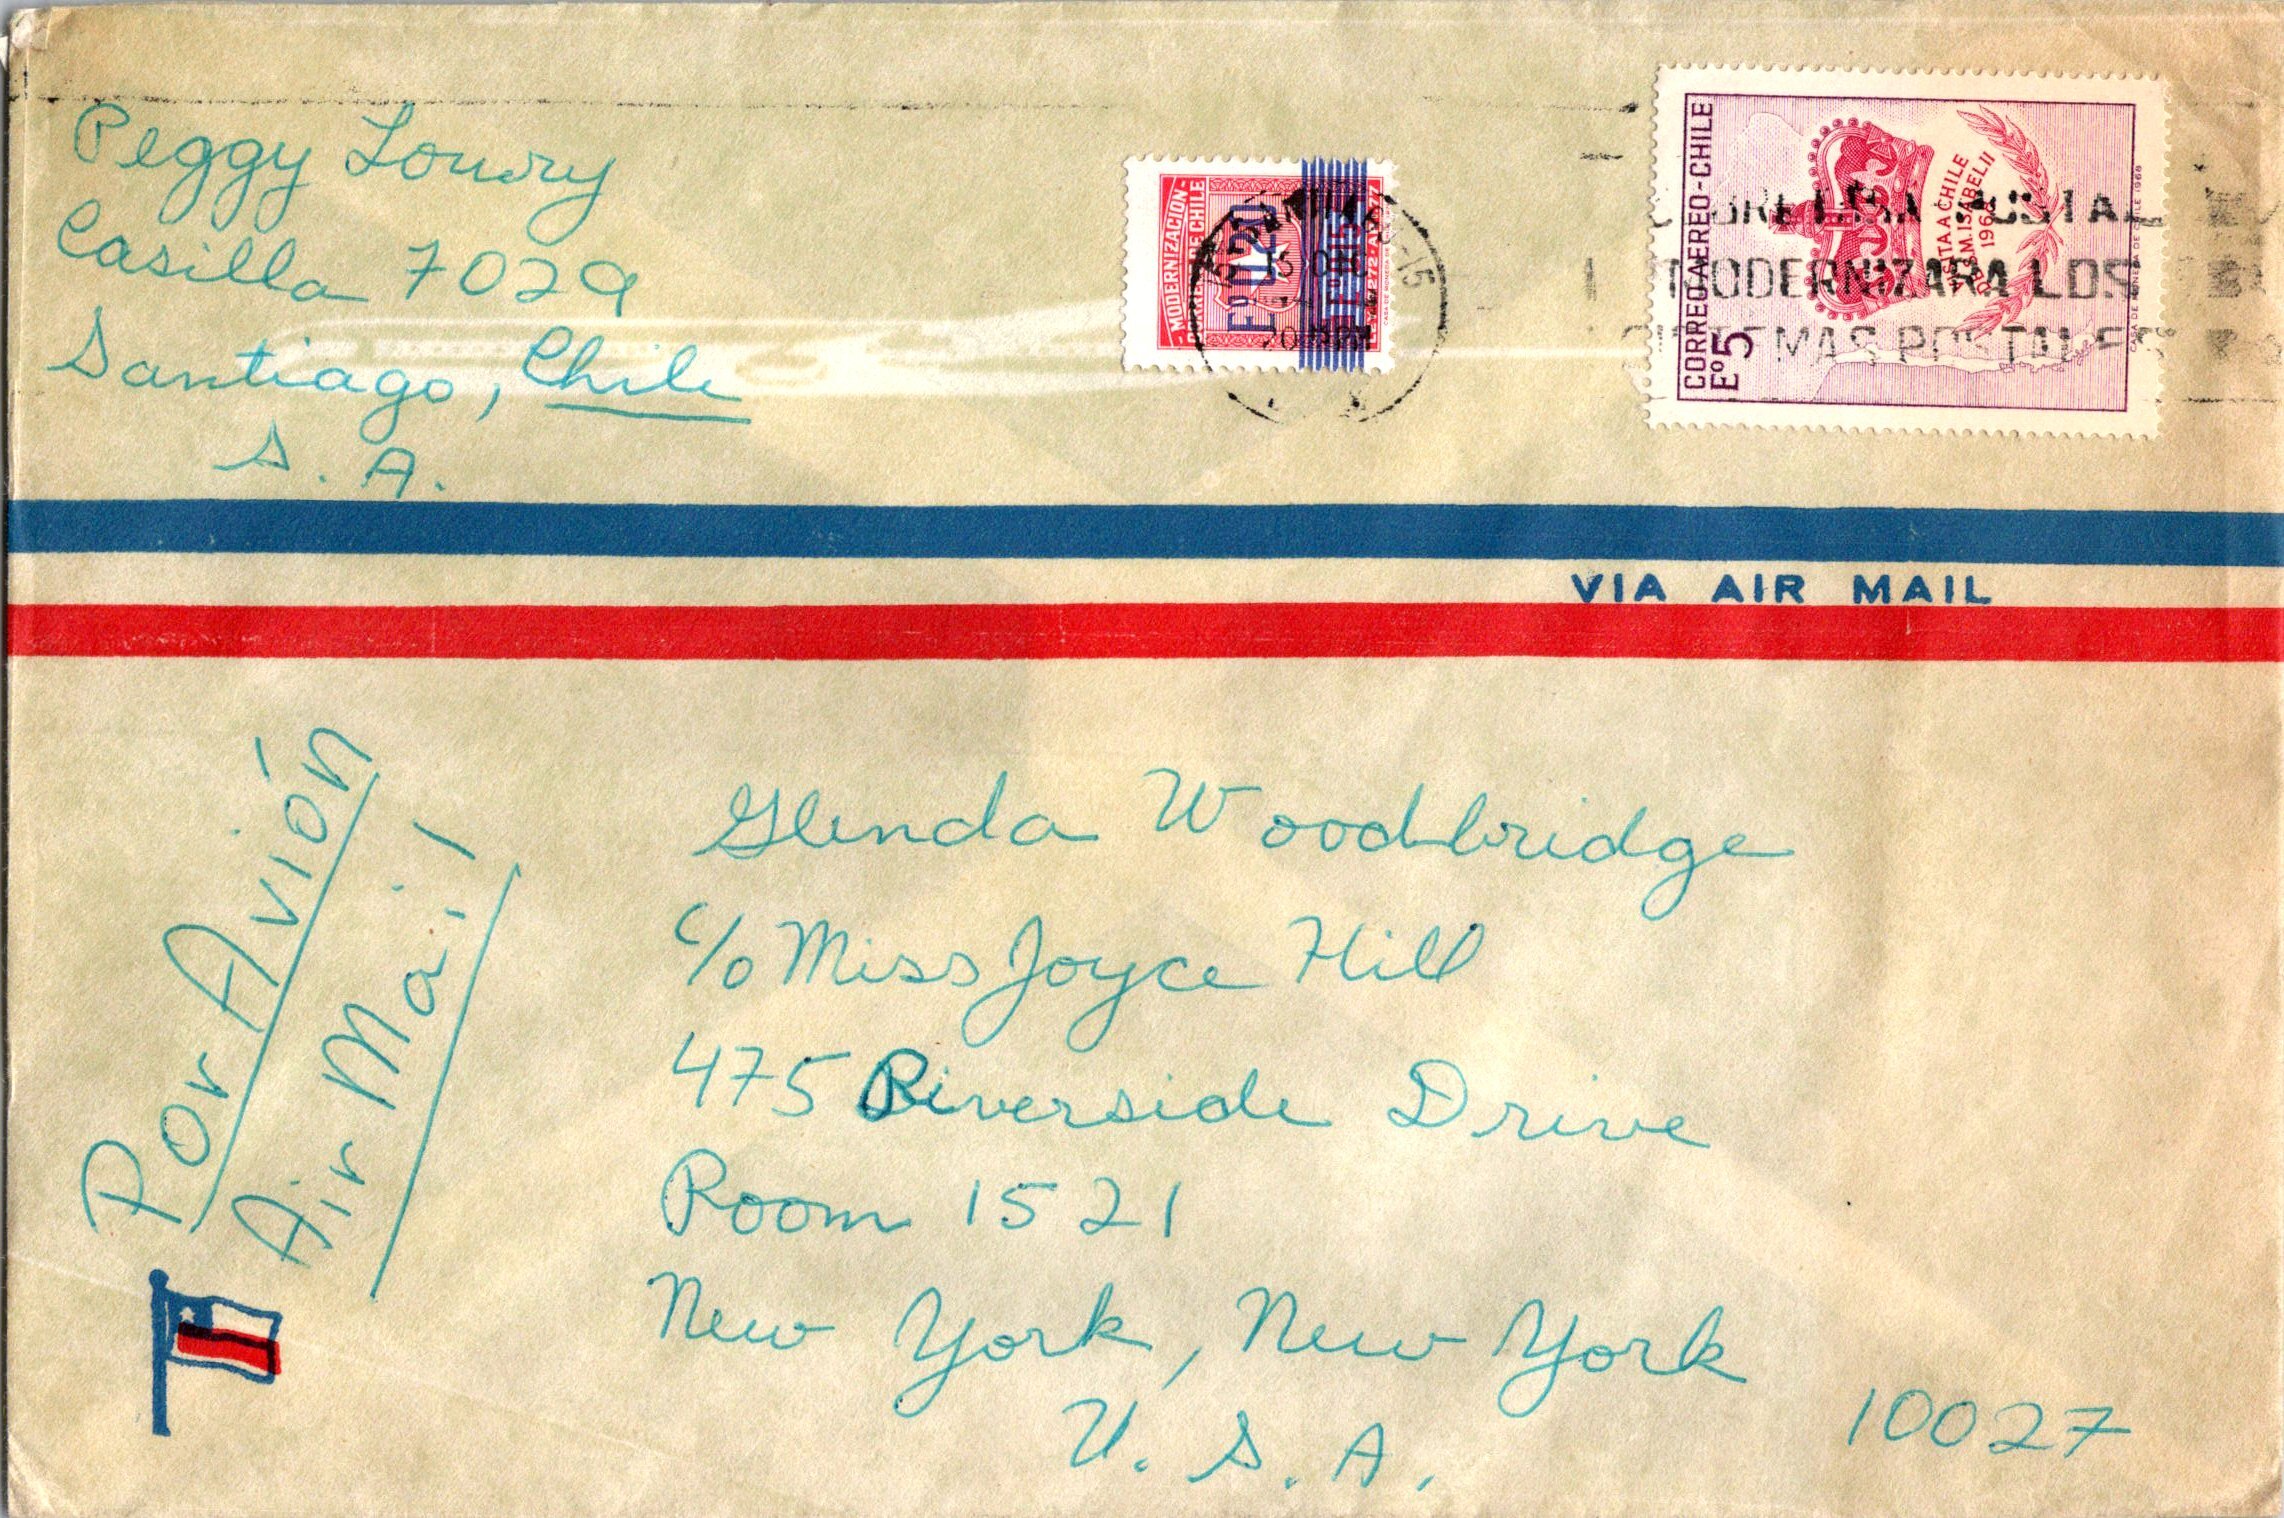 Peggy Lowry
Casilla 7029
Santiago, Chile
S. A.
MODERNIZACION
DE CHILE
E° 0.20
CORREO AEREO-CHILE
E° 5
VISITA A CHILE
DE S.M. ISABEL II
1968
CASA DE MONEDA DE CHILE 1968
POSTAL
MODERNIZARA LOS
POSTALES
VIA AIR MAIL
Por Avión
Air Mail
Glenda Woodbridge
c/o Miss Joyce Hill
475 Riverside Drive
Room 1521
New York, New York
10027
U. S. A.